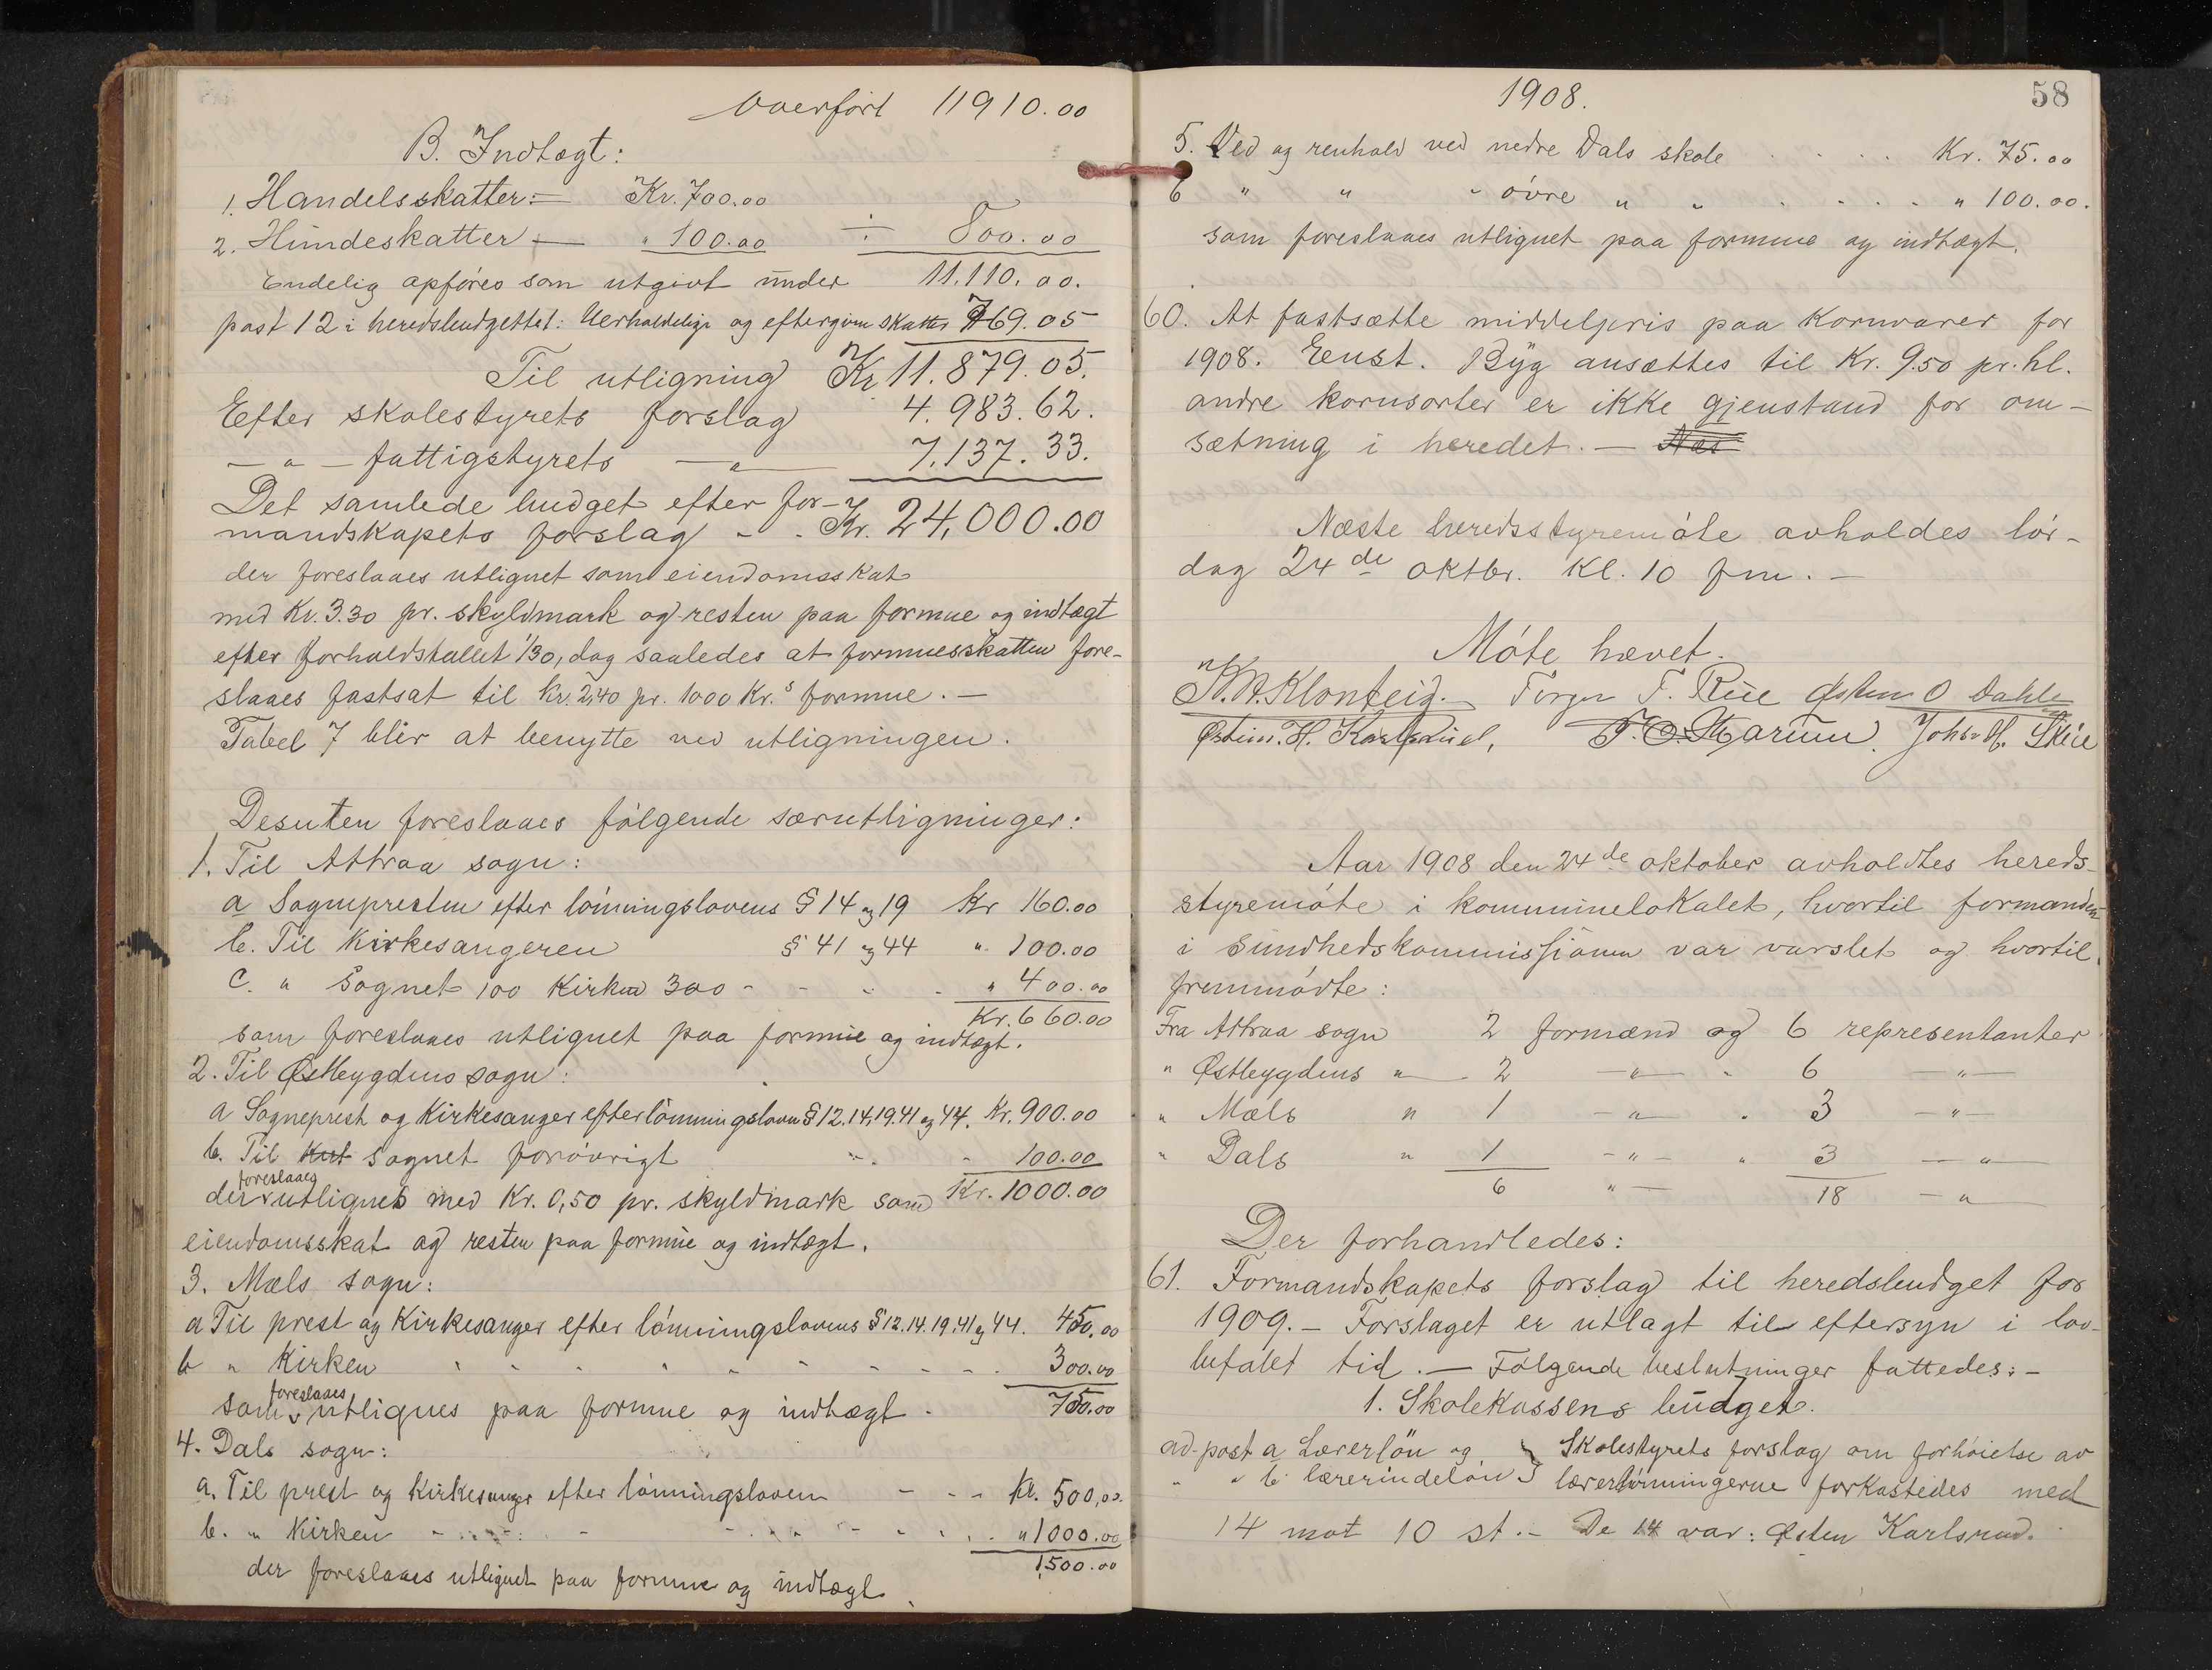 Overført 11910.00
B. Indtægt:
1. Handelsskatter = Kr. 700.00
2. Hundeskatter — " 100.00 ÷ 800.00
Endelig opføres som utgivt under 11.110.00.
post 12 i heredsbudgettet: Uerholdelige og eftergivne skatter 769.05
Til utligning Kr. 11.879.05.
Efter skolestyrets forslag 4.983.62.
— " — fattigstyrets — " — 7.137.33.
Det samlede budget efter for-
mandskapets forslag - - Kr. 24,000.00
der foreslaaes utlignet som eiendomsskat
med Kr. 3.30 pr. skyldmark og resten paa formue og indtægt
efter forholdstallet 1/30, dog saaledes at formuesskatten fore-
slaaes fastsat til Kr. 2,40 pr. 1000 Kr.s formue. —
Tabel 7 blir at benytte ved utligningen.
Desuten foreslaaes følgende særutligninger:
1. Til Attraa sogn:
a Sognepresten efter lønningslovens § 14 og 19 Kr 160.00
b. Til Kirkesangeren § 41 og 44 " 100.00
c. " Sognet 100 Kirken 300 - - - - " 400.00
Kr. 660.00
som foreslaaes utlignet paa formue og indtægt.
2. Til Østbygdens sogn:
a Sogneprest og Kirkesanger efter lønningsloven § 12.14.19.41 og 44. Kr. 900.00
b. Til sognet forøvrigt " - 100.00
der foreslaaes utlignet med Kr. 0,50 pr. skyldmark som Kr. 1000.00
eiendomsskat og resten paa formue og indtægt.
3. Mæls sogn:
a Til prest og Kirkesanger efter lønningslovens § 12.14.19.41 og 44. 450.00
b " Kirken - - - - - - - - - - 300.00
som foreslaaes utlignes paa formue og indtægt - 750.00
4. Dals sogn:
a. Til prest og Kirkesanger efter lønningsloven - - - Kr. 500,00.
b. " Kirken - - - - - - - - - " 1000.00
1,500.00
der foreslaaes utlignet paa formue og indtægt.
1908.
58
5. Ved og renhold ved nedre Dals skole . . . . Kr. 75.00
6 " " " øvre " " . . . . " 100.00.
som foreslaaes utlignet paa formue og indtægt.
60. At fastsætte middelpris paa Kornvarer for
1908. Eenst. Byg ansættes til Kr. 9.50 pr. hl.
andre kornsorter er ikke gjenstand for om-
sætning i heredet. — Næs
Næste heredsstyremøte avholdes lør-
dag 24de oktbr. Kl. 10 fm. —
Møte hævet.
Torger T. Rue Østen O Dahle
Østein. H. Karlsrud,
Aar 1908 den 24de oktober avholdtes hereds-
styremøte i kommunelokalet, hvortil formanden
i sundhedskommissionen var varslet og hvortil
fremmødte:
Fra Attraa sogn 2 formænd og 6 representanter
" Østbygdens " - 2 — " — " 6 — " —
" Mæls " 1 — " — " 3 — " —
" Dals " 1 — " — " 3 — " —
6 " — 18 — " —
Der forhandledes:
61. Formandskapets forslag til heredsbudget for
1909. — Forslaget er utlagt til eftersyn i lov-
befalet tid. — Følgende beslutninger fattedes: -
1. Skolekassens budget.
ad. post a Lærerløn og } Skolestyrets forslag om forhøielse av
" " b. lærerindeløn } lærerlønningerne forkastedes med
14 mot 10 st. - De 14 var: Østen Karlsrud.